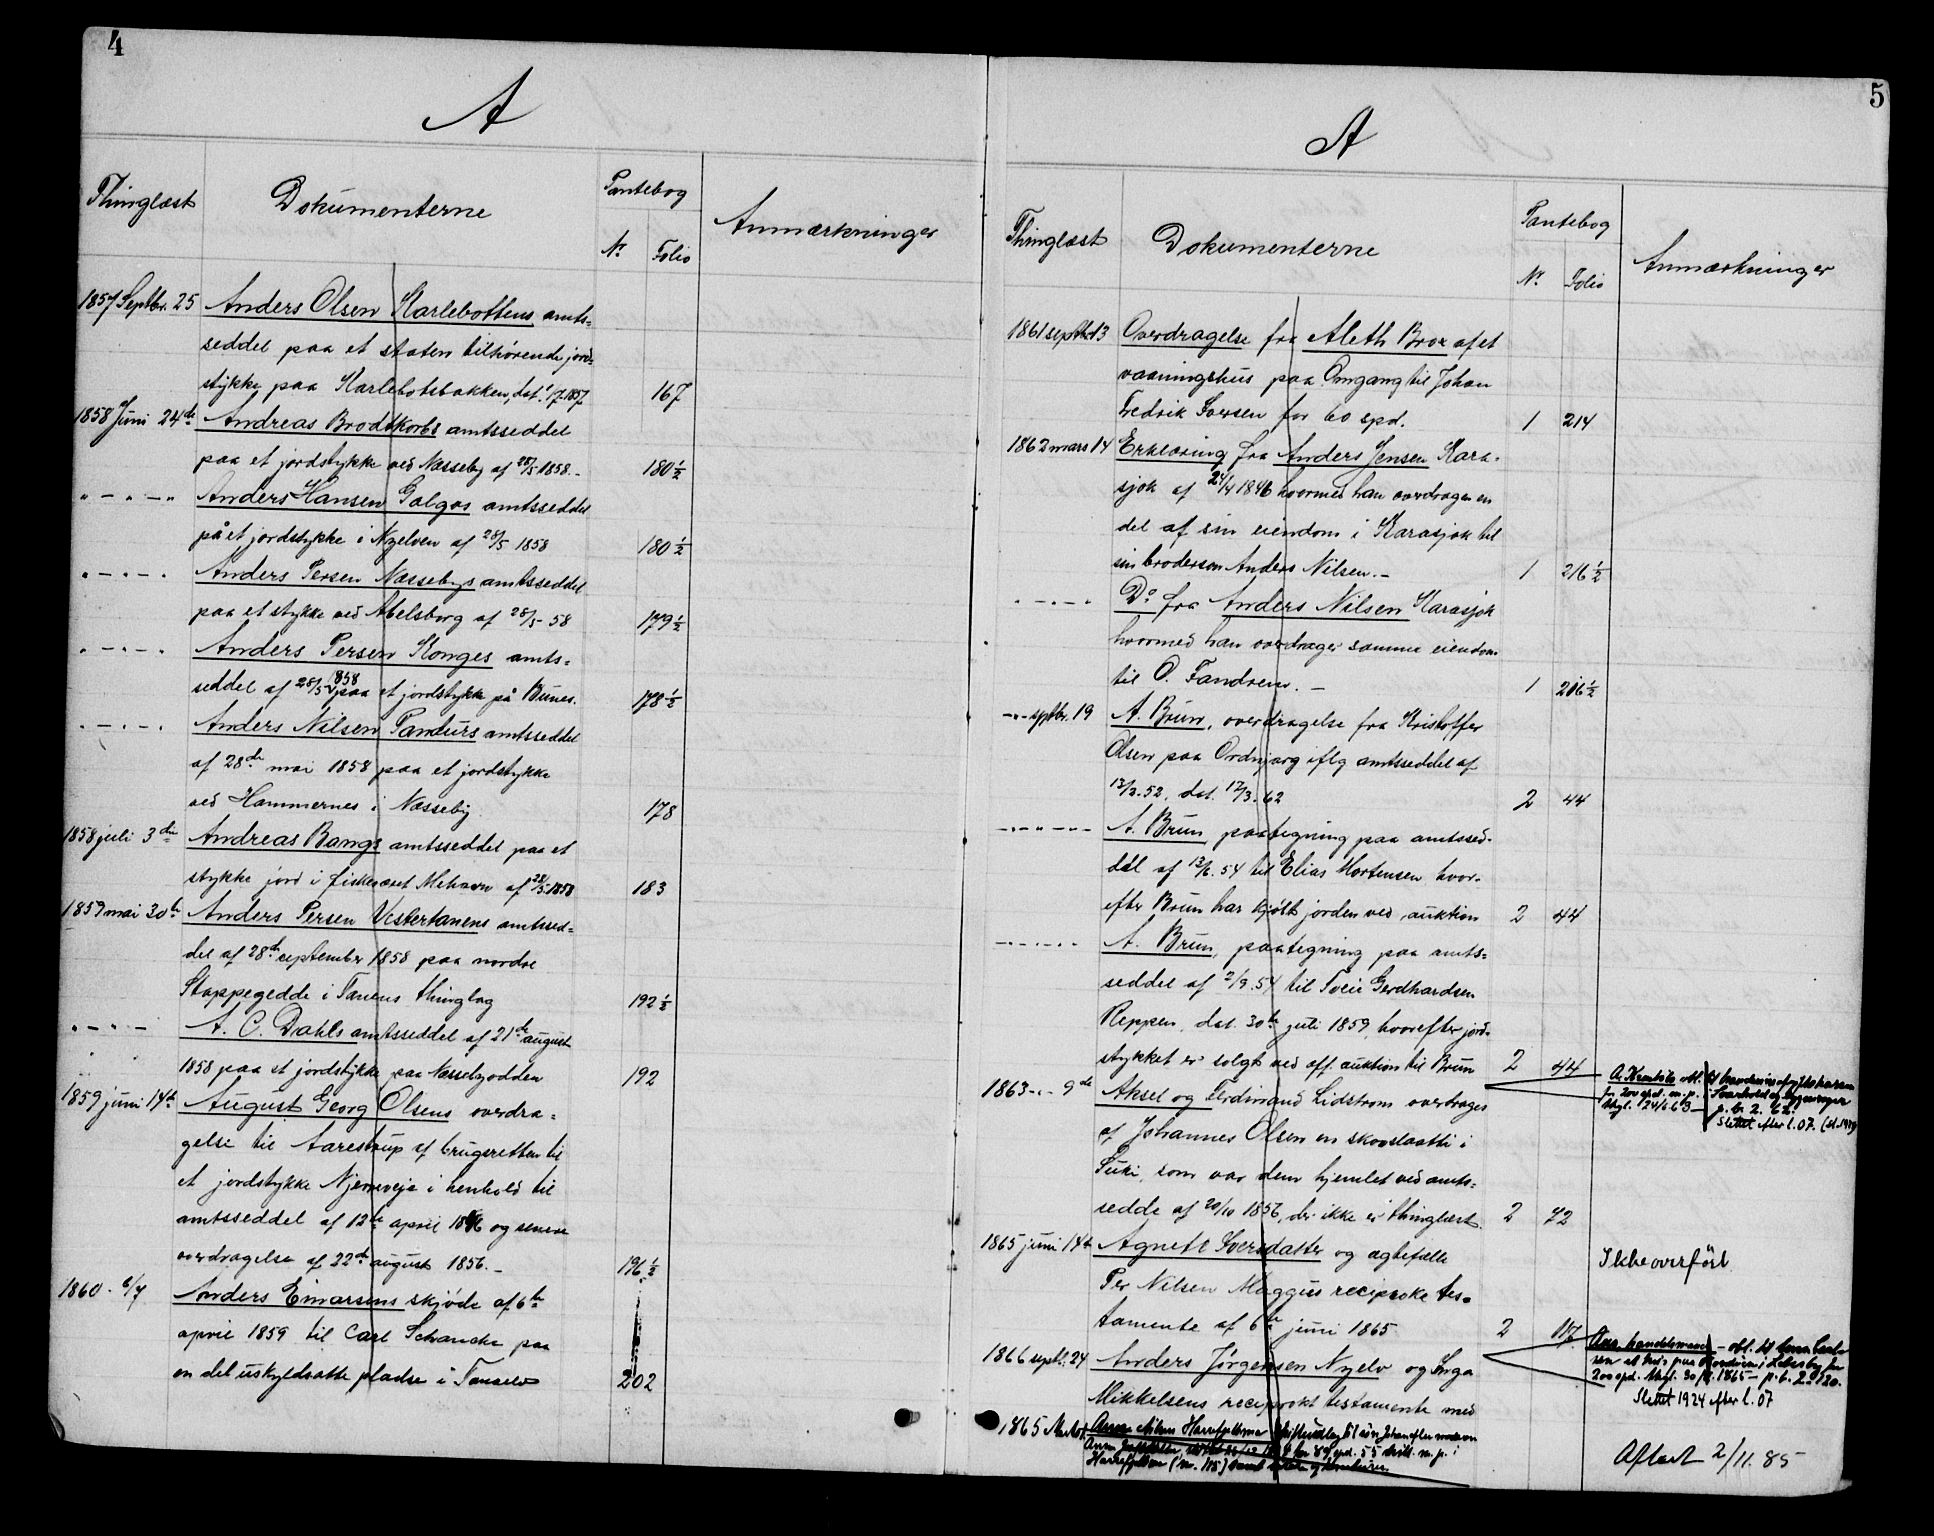 4
A
Thinglæst
Dokumenterne
Pantebog
Nr.
Folio
Anmærkninger
1857 Septbr. 25 Anders Olsen Karlebottens amts-
seddel paa et staten tilhørende jord-
stykke paa Karlebotsbakken, dat. 1857 167
1858 Juni 24de Andreas Brodtkorbs amtsseddel
paa et jordstykke ved Næsseby af 28/5 1858.- 180 1/2
" - " - " Anders Hansen Golgos amtsseddel
på et jordstykke i Nyelven af 28/5 1858 180 1/2
" - " - " Anders Persen Næssebys amtsseddel
paa et stykke ved Abelsborg af 28/5 - 58 179 1/2
" - " - " Anders Persen Konges amts-
seddel af 28/5 1858 paa et jordstykke på Bunes. 178 1/2
" - " - " Anders Nilsen Pandurs amtsseddel
af 28de mai 1858 paa et jordstykke
ved Hammernes i Næsseby 178
1858 juli 3die Andreas Bangs amtsseddel paa et
stykke jord i fiskeværet Mehavn af 28/5 1858 183
1859 mai 30te Anders Persen Vestertanens amtssed-
del af 28de september 1858 paa nordre
Stappegedde i Tanens thinglag 192 1/2
" - " - A. C. Dahls amtsseddel af 21de august
1858 paa et jordstykke paa Næssebyodden 192
1859 juni 14de August Georg Olsens overdra-
gelse til Aarestrup af brugsretten til
et jordstykke Njerreveje i henhold til
amtsseddel af 12te april 1846 og senere
overdragelse af 22de august 1856.- 196 1/2
1860 - 6/7 Anders Einarsens skjøde af 6te
april 1859 til Carl Schancke paa
en del uskyldsatte pladse i Tanaelv 202
5
A
Thinglæst
Dokumenterne
Pantebog
Nr.
Folio
Anmærkninger
1861 septbr 13 Overdragelse fra Aleth Brox af et
vaaningshus paa Omgang til Johan
Fredrik Iversen for 60 spd. 1 214
1862 mars 14 Erklæring fra Anders Jensen Kara-
sjok af 24/4 1846 hvormed han overdrager en
del af sin eiendom i Karasjok til
sin brodersøn Anders Nilsen.- 1 216 1/2
" - " - " Do fra Anders Nilsen Karasjok
hvormed han overdrager samme eiendom
til O. Fandrem. - 1 216 1/2
- " - sptbr. 19 A. Brun, overdragelse fra Kristoffer
Olsen paa Ordnjarg iflg amtsseddel af
13/3.52, dat. 12/3.62 2 44
- " - " - - A. Brun, paategning paa amtssed-
del af 13/6.54 til Elias Mortensen hvor-
efter Brun har kjøbt jorden ved auktion 2 44
- " - " - " A. Brun, paategning paa amts-
seddel af 2/9.54 til Gerdhardsen
Reppen, dat. 30te juli 1859, hvorefter jord-
stykket er solgt ved off. auktion til Brun 2 44
1863 - " - 9de Aksel og Ferdinand Lidstrøm overdrages
af Johannes Olsen en skovslaatti i
som var dem hjemlet ved amts-
sedde af 20/10 1856, der ikke er thinglæst. 2 72
obl.
for 200 spd. m. p. i
thgl. 24/6 63 p. b. 2. 62.
Slettet efter l. 07.
1865 juni 14de Agnete Iversdatter og ægtefælle
Per Nilsen Maggus reciproke tes-
tamente af 6te juni 1865 2 117
Ikke overført
1866 septbr. 24 Anders Jørgensen Nyelv og Inga
Mikkelsens reciprokt testamente med
handelsmand - obl. til
sen et hus paa i Lebesby for
200 spd. thgl. 1865 - p. b. 2 - 120.
Slettet 1924 efter l. 07
1865
Aflæst 2/11. 85